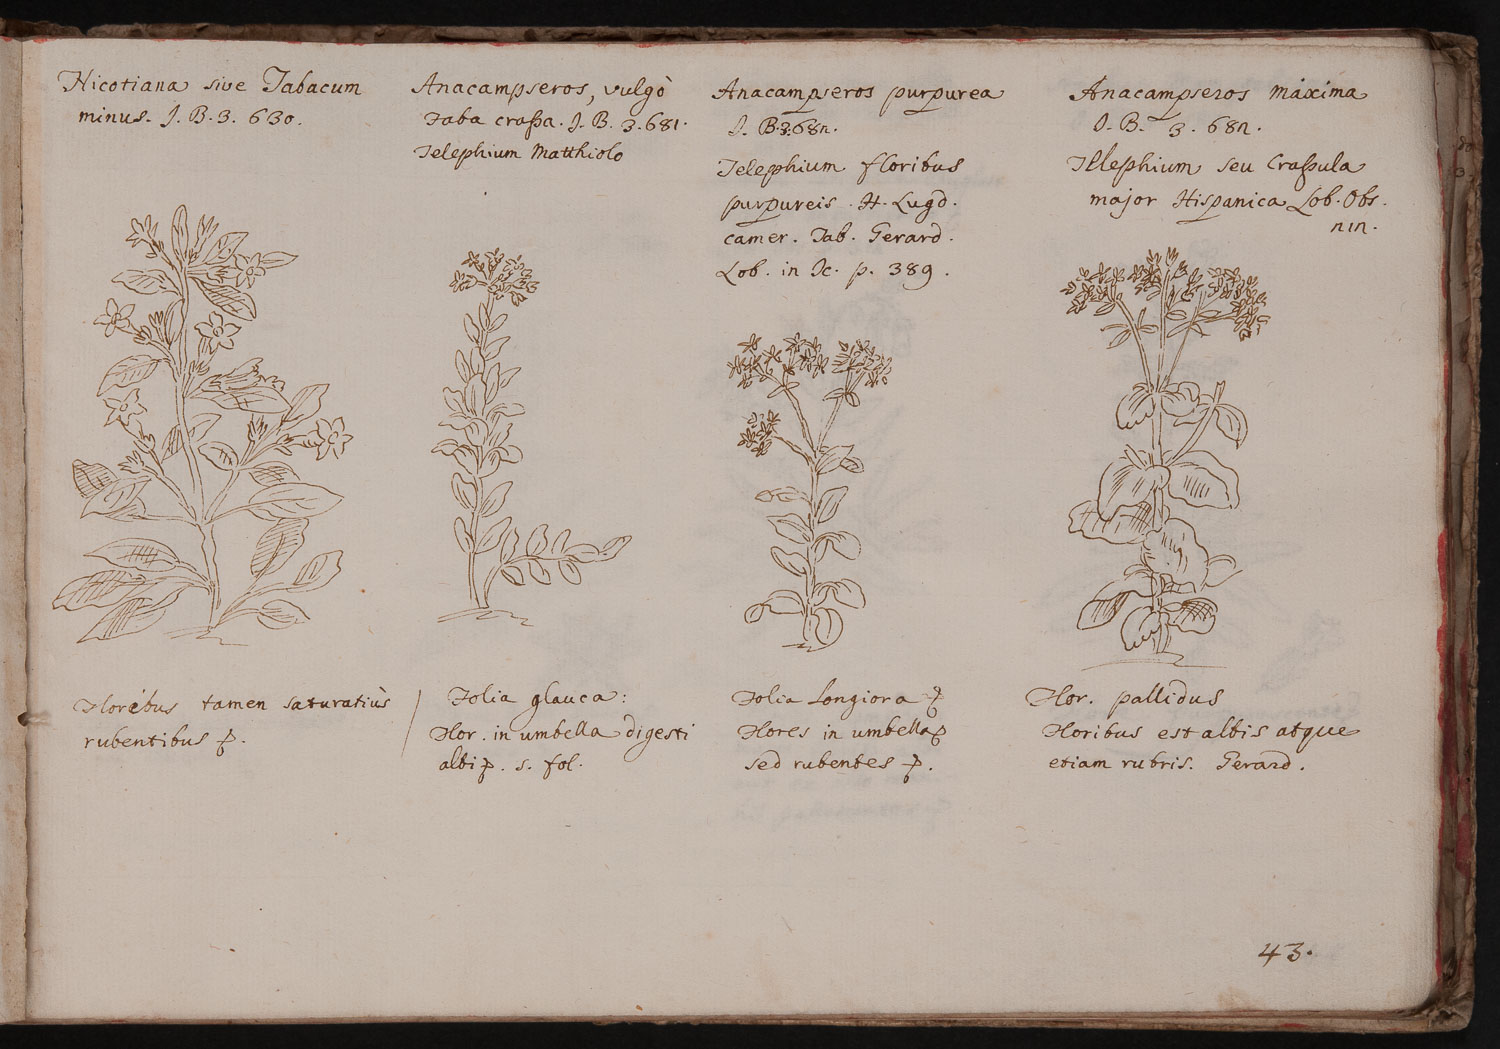 Nicotiana sive Tabacum
minus. J. B. 3. 630.
Anacampseros, vulgò
Faba craßa. J. B. 3. 681.
Telephium Matthiolo
Anacampseros purpurea
J. B. 3. 682.
Telephium floribus
purpureis. H. Lugd.
camer. Tab. Gerard.
Lob. in Ic. p. 389.
Anacampseros maxima
J. B. 3. 682.
Telephium seu Craßula
major Hispanica Lob. Obs.
Floribus tamen saturatiùs
rubentibus
Folia glauca:
Flor. in umbella digesti
albi s. fol.
Folia longiora
Flores in umbella
sed rubentes
Flor. pallidus
Floribus est albis atque
etiam rubris. Gerard.
43.